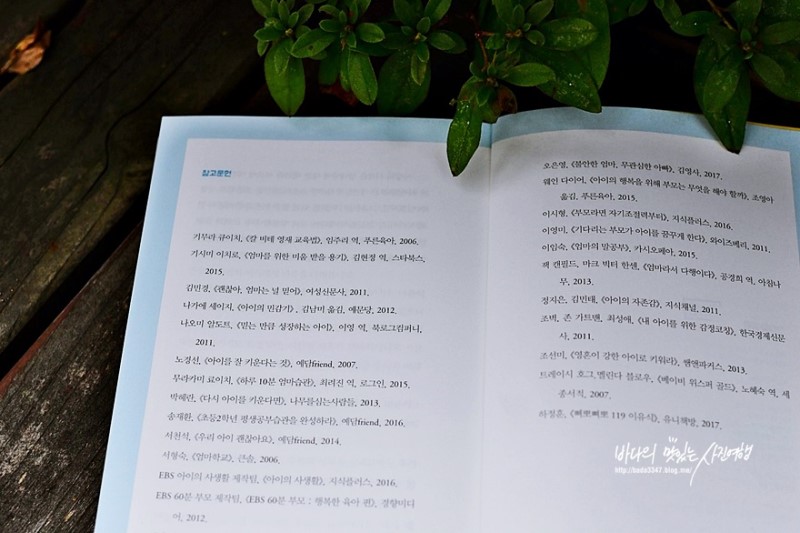 참고문헌
기무라 큐이치, 《칼 비테 영재 교육법》, 임주리 역, 푸른육아, 2006.
기시미 이치로, 《엄마를 위한 미움 받을 용기》, 김현정 역, 스타북스,
2015.
김민경, 《괜찮아, 엄마는 널 믿어》, 여성신문사, 2011.
나가에 세이지, 《아이의 민감기》, 김남미 옮김, 예문당, 2012.
나오미 알도트, 《믿는 만큼 성장하는 아이》, 이영 역, 북로그컴퍼니,
2011.
노경선, 《아이를 잘 키운다는 것》, 예담friend, 2007.
무라카미 료이치, 《하루 10분 엄마습관》, 최려진 역, 로그인, 2015.
박혜란, 《다시 아이를 키운다면》, 나무를심는사람들, 2013.
송재환, 《초등2학년 평생공부습관을 완성하라》, 예담friend, 2016.
서천석, 《우리 아이 괜찮아요》, 예담friend, 2014.
서형숙, 《엄마학교》, 큰솔, 2006.
EBS 아이의 사생활 제작팀, 《아이의 사생활》, 지식플러스, 2016.
EBS 60분 부모 제작팀, 《EBS 60분 부모 : 행복한 육아 편》, 경향미디
어, 2012.
오은영, 《불안한 엄마, 무관심한 아빠》, 김영사, 2017.
웨인 다이어, 《아이의 행복을 위해 부모는 무엇을 해야 할까》, 조영아
옮김, 푸른육아, 2015.
이시형, 《부모라면 자기조절력부터》, 지식플러스, 2016.
이영미, 《기다리는 부모가 아이를 꿈꾸게 한다》, 와이즈베리, 2011.
이임숙, 《엄마의 말공부》, 카시오페아, 2015.
잭 캔필드, 마크 빅터 한센, 《엄마라서 다행이다》, 공경희 역, 아침나
무, 2013.
정지은, 김민태, 《아이의 자존감》, 지식채널, 2011.
조벽, 존 가트맨, 최성애, 《내 아이를 위한 감정코칭》, 한국경제신문
사, 2011.
조선미, 《영혼이 강한 아이로 키워라》, 쌤앤파커스, 2013.
트레이시 호그, 멜린다 블로우, 《베이비 위스퍼 골드》, 노혜숙 역, 세
종서적, 2007.
하정훈, 《삐뽀삐뽀 119 이유식》, 유니책방, 2017.
바다의 맛있는 사진여행
http://bada3347.blog.me/